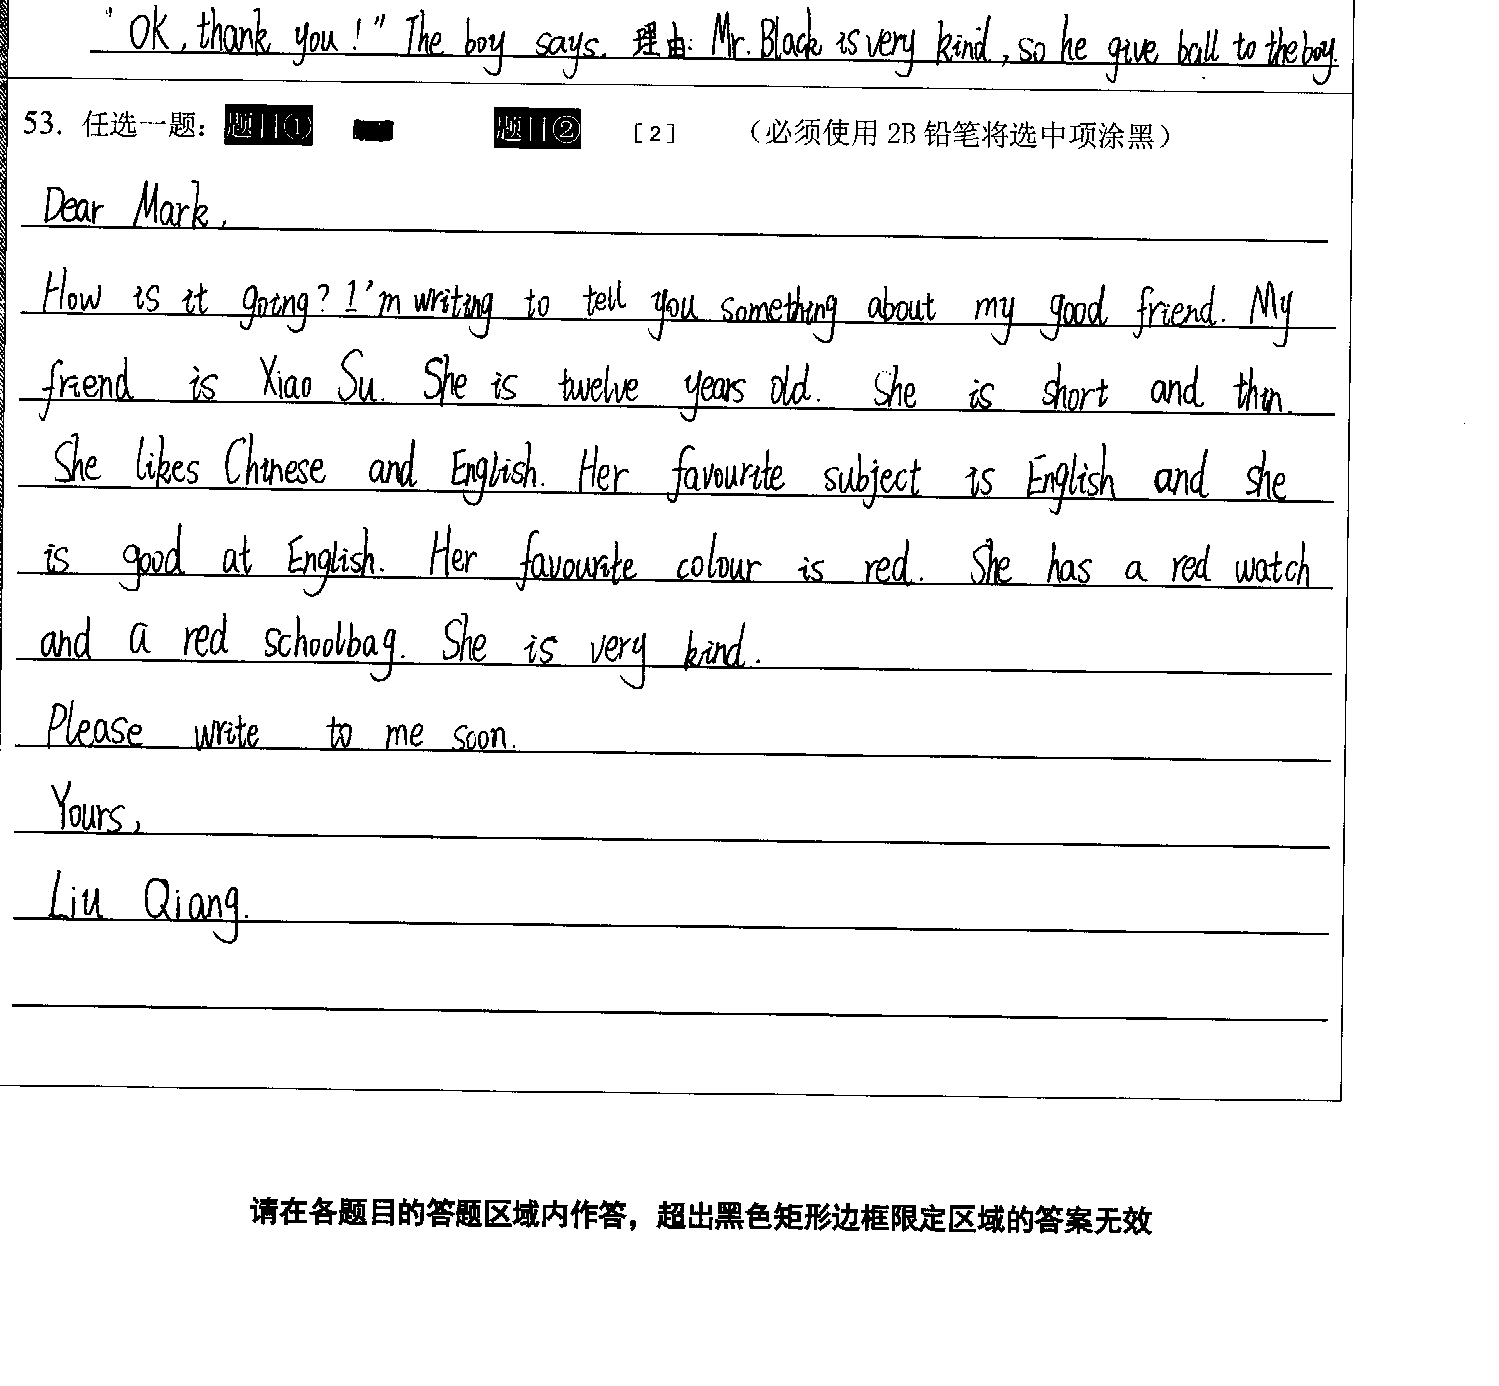 "OK, thank you!" The boy says. 理由: Mr. Black is very kind, so he give ball to the boy.
53. 任选一题: 题目① 题目② [2] (必须使用 2B 铅笔将选中项涂黑)
Dear Mark,
How is it going? I'm writing to tell you something about my good friend. My
friend is Xiao Su. She is twelve years old. She is short and thin.
She likes Chinese and English. Her favourite subject is English and she
is good at English. Her favourite colour is red. She has a red watch
and a red schoolbag. She is very kind.
Please write to me soon.
Yours,
Liu Qiang.
请在各题目的答题区域内作答，超出黑色矩形边框限定区域的答案无效